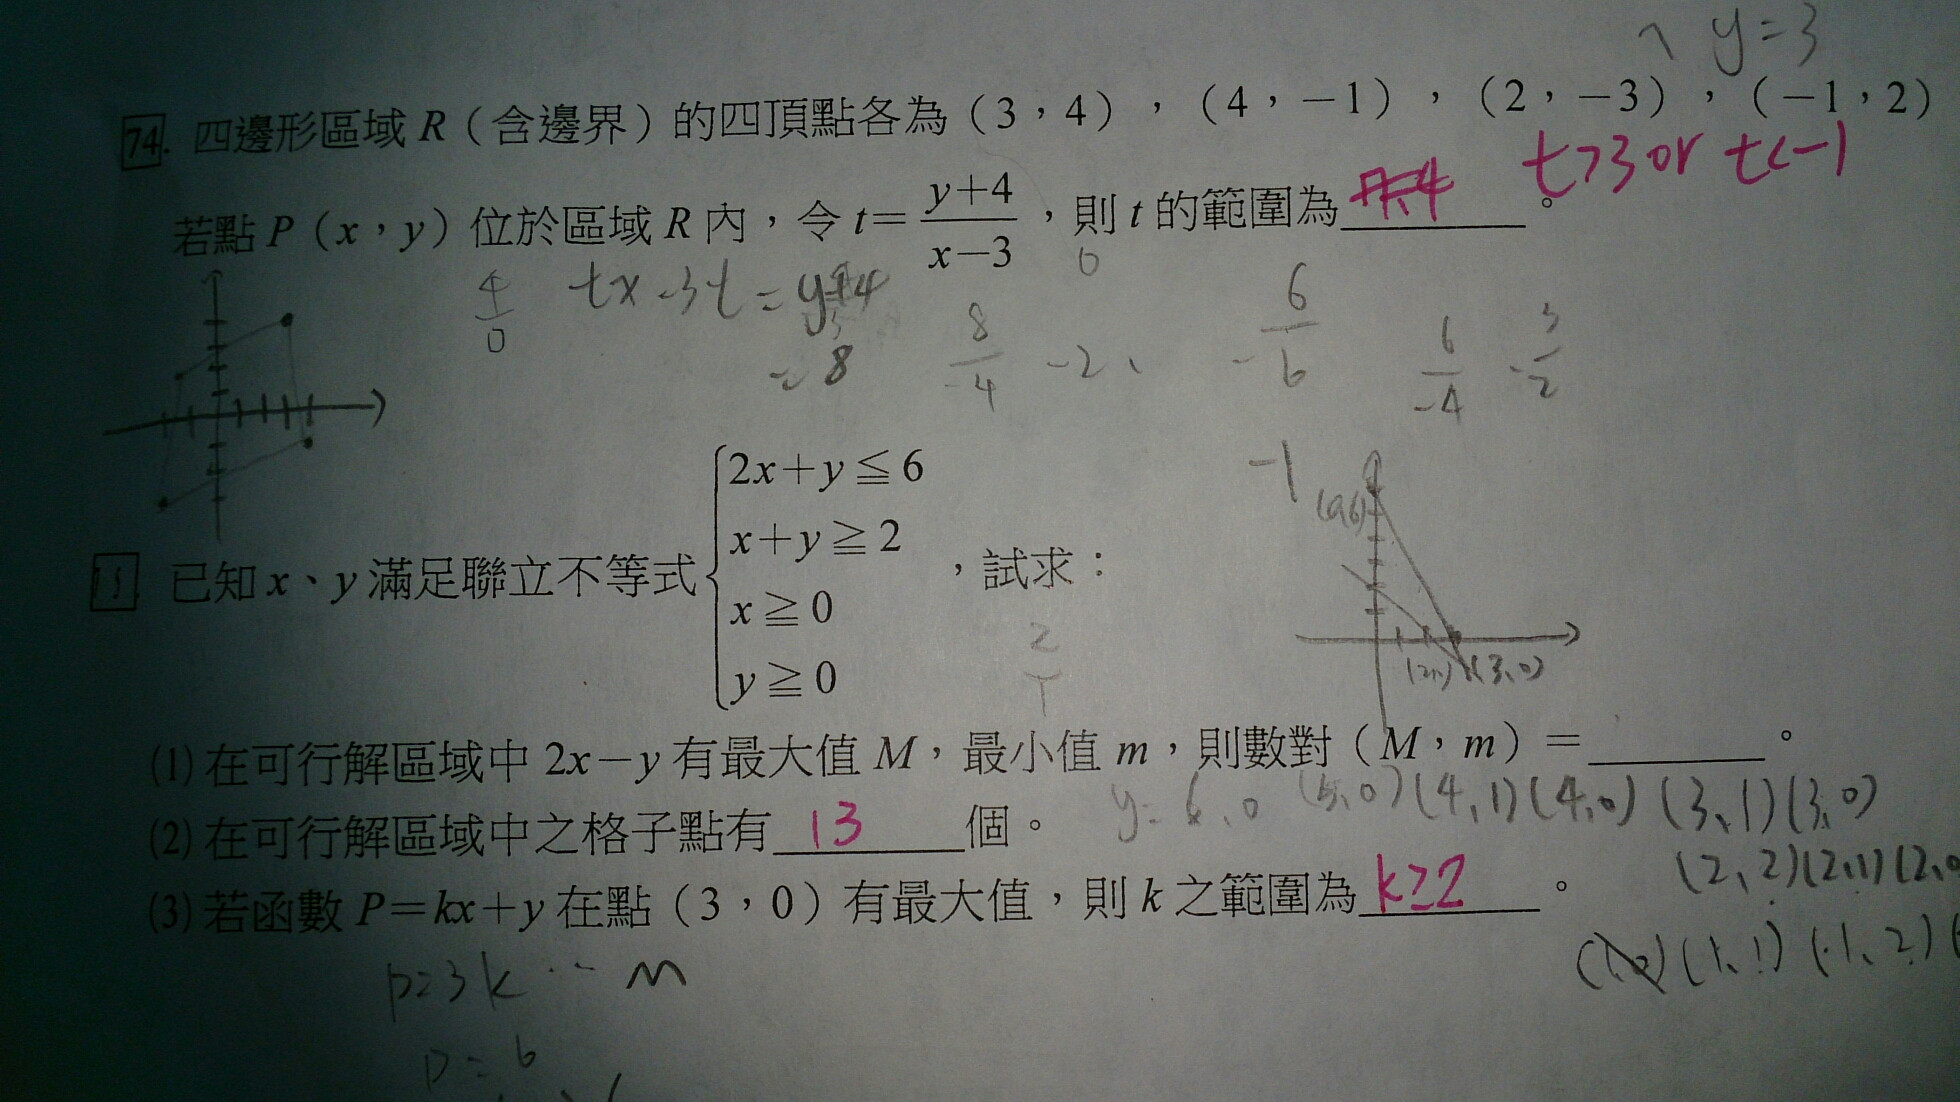 y=3
74. 四邊形區域 R（含邊界）的四頂點各為（3，4），（4，－1），（2，－3），（－1，2）
t>3 or t<-1
若點 P（x，y）位於區域 R 內，令 t= (y+4)/(x−3)，則 t 的範圍為________。
4/0 tx-3t=y+4
=8 8/-4 -2、 -6/6 6/-4 -3/2
-1
已知 x、y 滿足聯立不等式 { 2x+y≦6
x+y≧2
x≧0
y≧0 ，試求：
(3,0)
(1) 在可行解區域中 2x−y 有最大值 M，最小值 m，則數對（M，m）=________。
y= 6、0 (5,0)(4,1)(4,0)(3,1)(3,0)
(2) 在可行解區域中之格子點有 13 個。
(2,2)(2,1)(2,0
(3) 若函數 P=kx+y 在點（3，0）有最大值，則 k 之範圍為 k≥2 。
(1,1)
p=3k … m
p=6